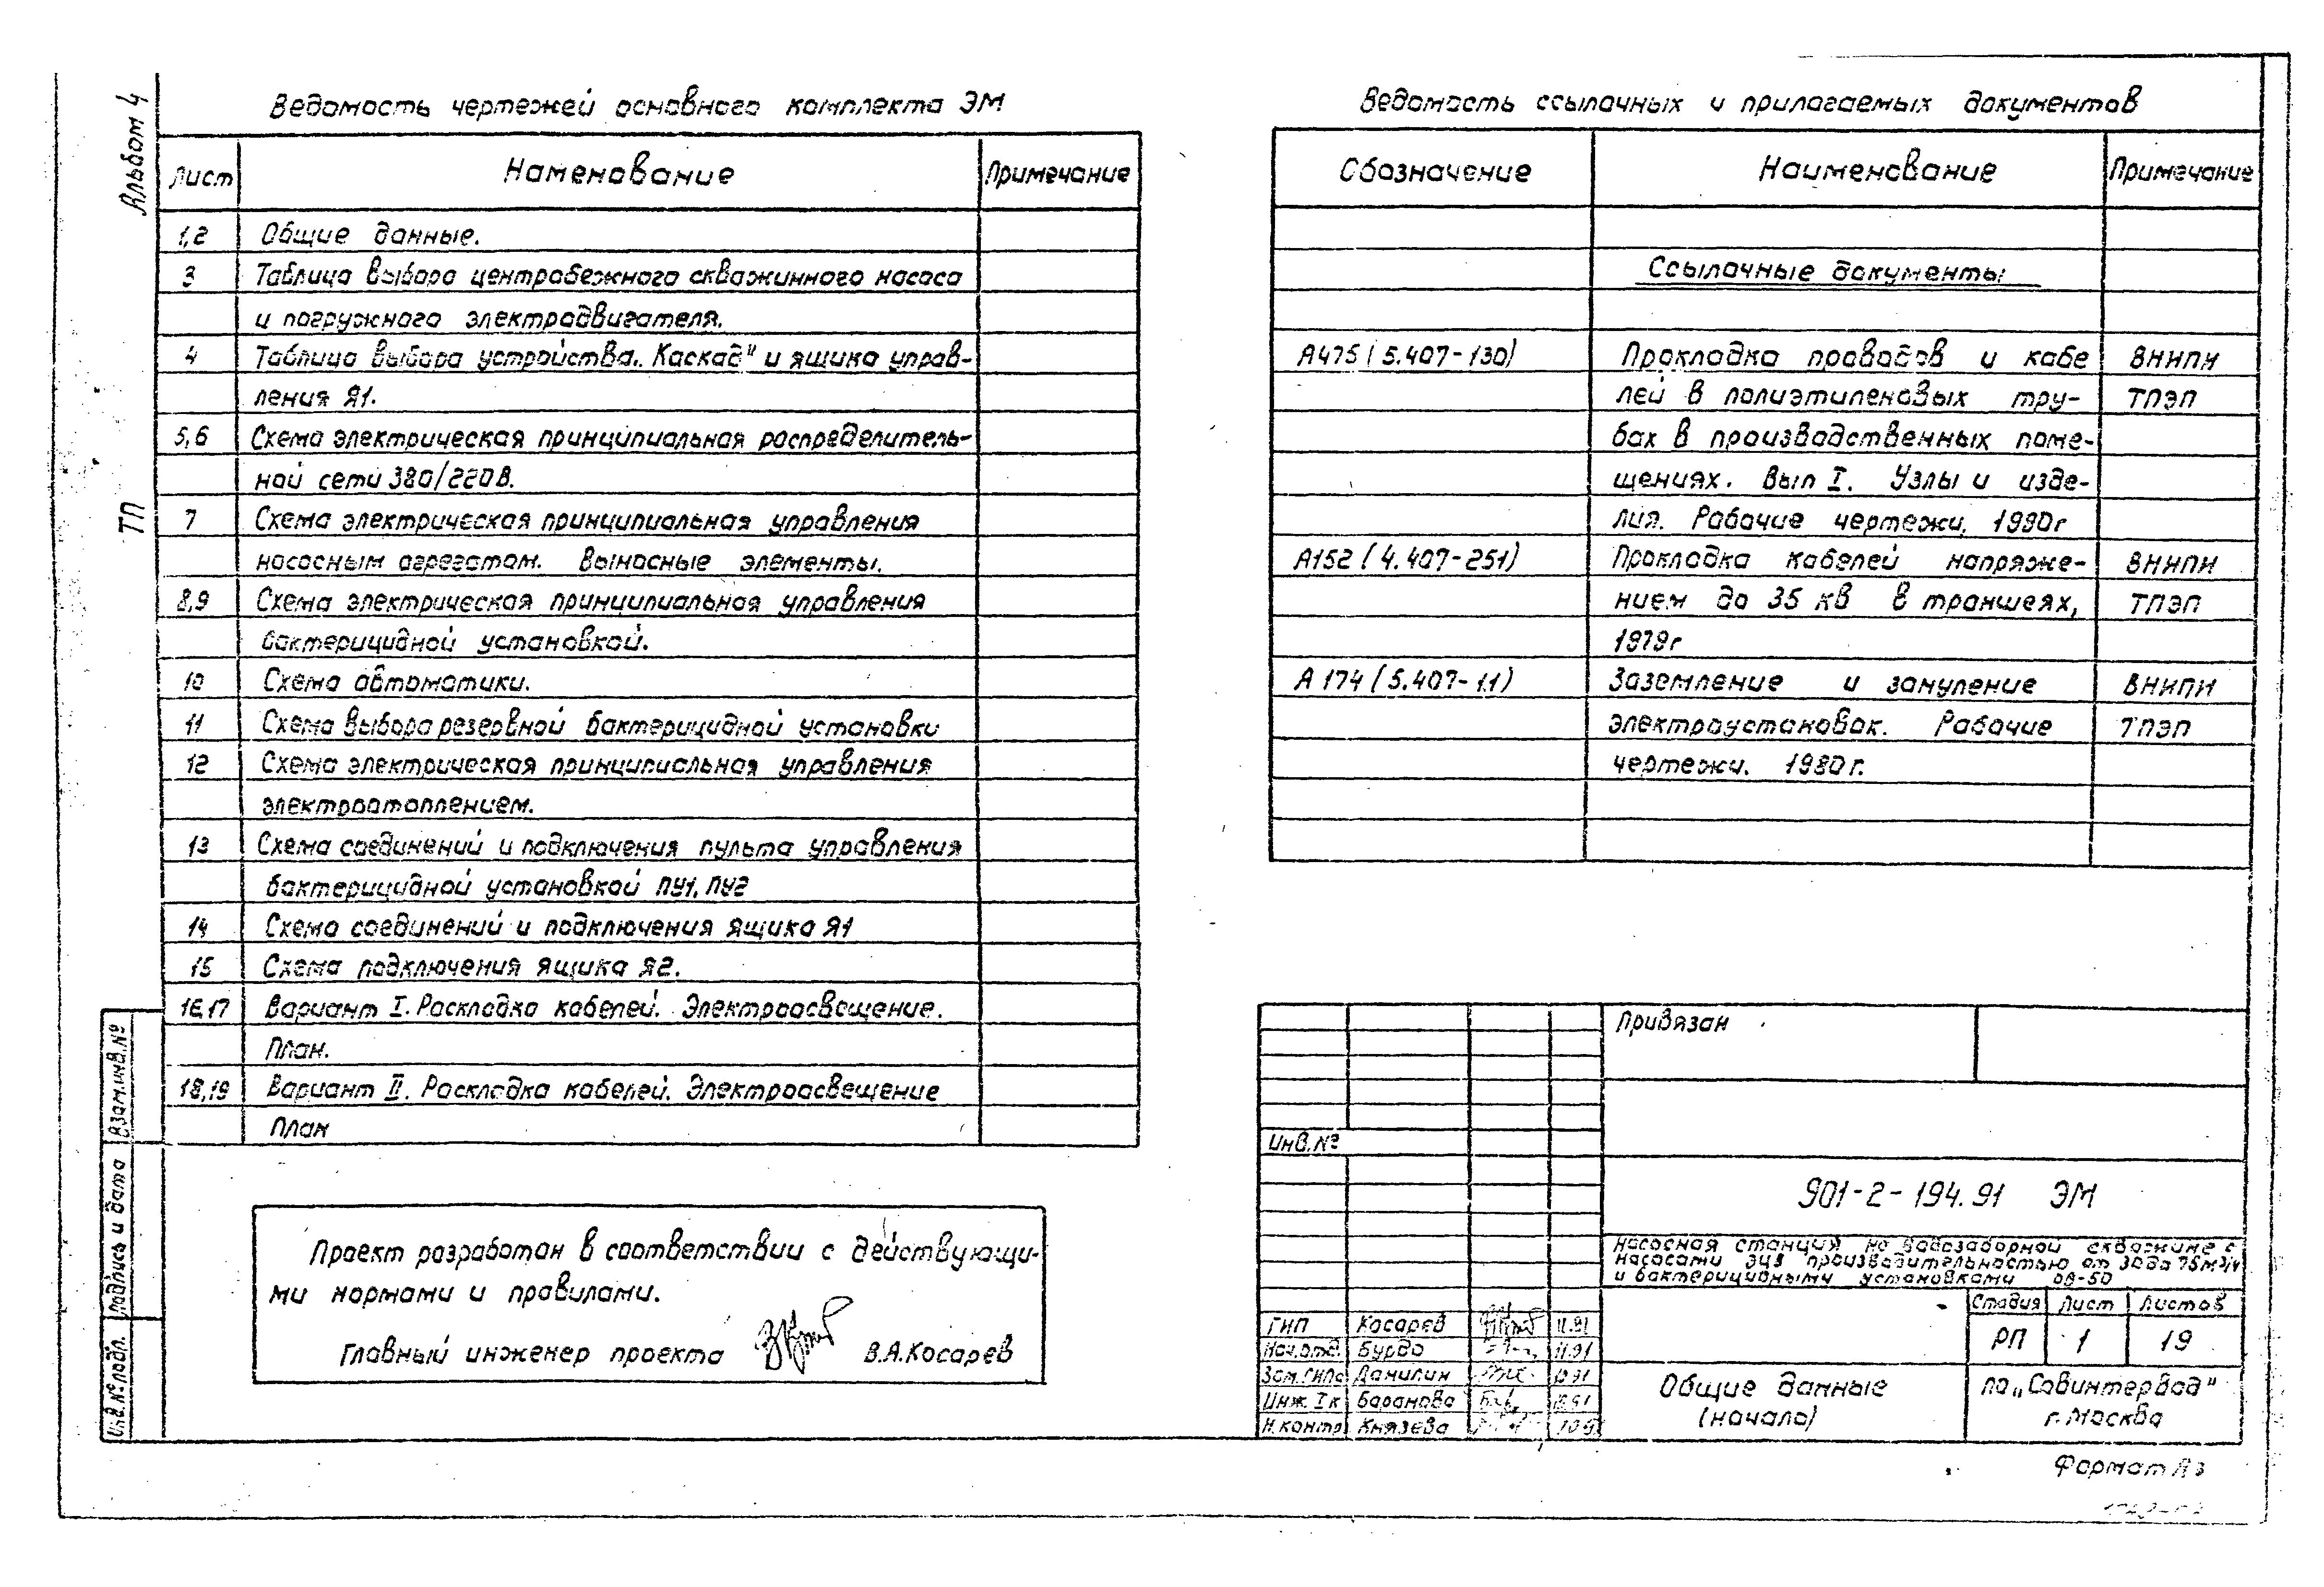 Альбом 4
ТП
Ведомость чертежей основного комплекта ЭМ
Лист Наменование Примечание
1,2 Общие данные.
3 Таблица выбора центробежного скважинного насоса
и погружного электродвигателя.
4 Таблица выбора устройства „Каскад" и ящика управ-
ления Я1.
5,6 Схема электрическая принципиальная распределитель-
ной сети 380/220В.
7 Схема электрическая принципиальная управления
насосным агрегатом. Выносные элементы.
8,9 Схема электрическая принципиальная управления
бактерицидной установкой.
10 Схема автоматики.
11 Схема выбора резервной бактерицидной установки
12 Схема электрическая принципиальная управления
электроотоплением.
13 Схема соединений и подключения пульта управления
бактерицидной установкой ПУ1, ПУ2
14 Схема соединений и подключения ящика Я1
15 Схема подключения ящика Я2.
16,17 Вариант I. Раскладка кабелей. Электроосвещение.
План.
18,19 Вариант II. Раскладка кабелей. Электроосвещение
План
Проект разработан в соответствии с действующи-
ми нормами и правилами.
Главный инженер проекта В.А.Косарев
Взам.инв.№
Подпись и дата
Инв.№подл.
Ведомость ссылочных и прилагаемых документов
Обозначение Наименование Примечание
Ссылочные документы
А475 (5.407-130) Прокладка проводов и кабе ВНИПИ
лей в полиэтиленовых тру- ТПЭП
бах в производственных поме-
щениях. Вып I. Узлы и изде-
лия. Рабочие чертежи, 1990г
А152 (4.407-251) Прокладка кабелей напряже- ВНИПИ
нием до 35 кв в траншеях, ТПЭП
1979г
А174 (5.407-11) Заземление и зануление ВНИПИ
электроустановок. Рабочие ТПЭП
чертежи. 1980г.
Привязан
Инв.№
901-2-194.91 ЭМ
Насосная станция на водозаборной скважине с
насосами ЭЦВ производительностью от 30 до 75м3/ч
и бактерицидными установками ОВ-50
Стадия Лист Листов
РП 1 19
ГИП Косарев 11.91
Нач.отд. Бурдо 11.91
Зам.ГИПа Данилин 10.91
Инж. Iк Баранова 10.91
Н.контр Князева
Общие данные
(начало)
ПО „Совинтервод"
г. Москва
Формат А3